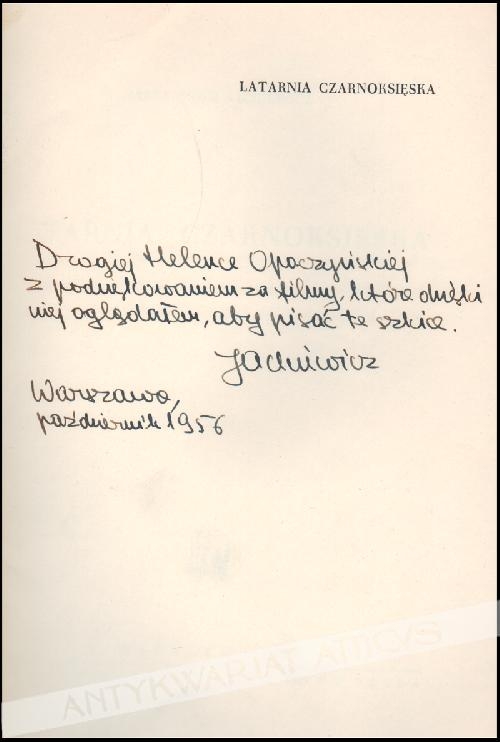 LATARNIA CZARNOKSIĘSKA
Drogiej Helence Opoczyńskiej
z podziękowaniem za filmy, które dzięki
niej oglądałem, aby pisać te szkice.
Jackiewicz
Warszawa,
październik 1956
ANTYKWARIAT ATTICVS